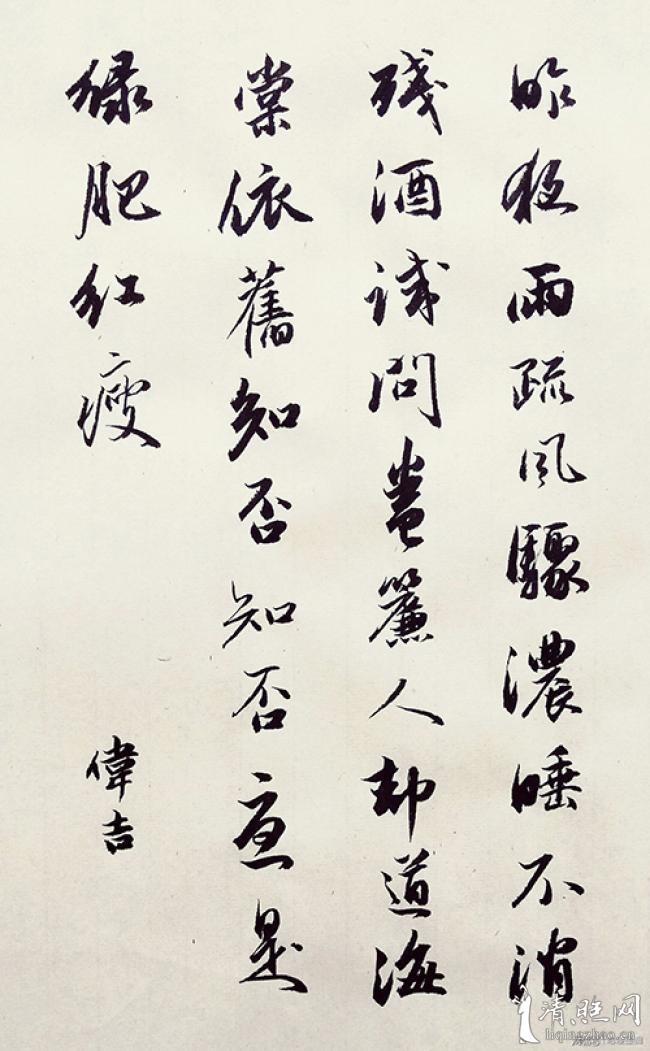 昨夜雨疏风驟濃睡不消
残酒試問捲簾人却道海
棠依舊知否知否應是
緑肥紅瘦
偉吉
清照网
liqingzhao.cn